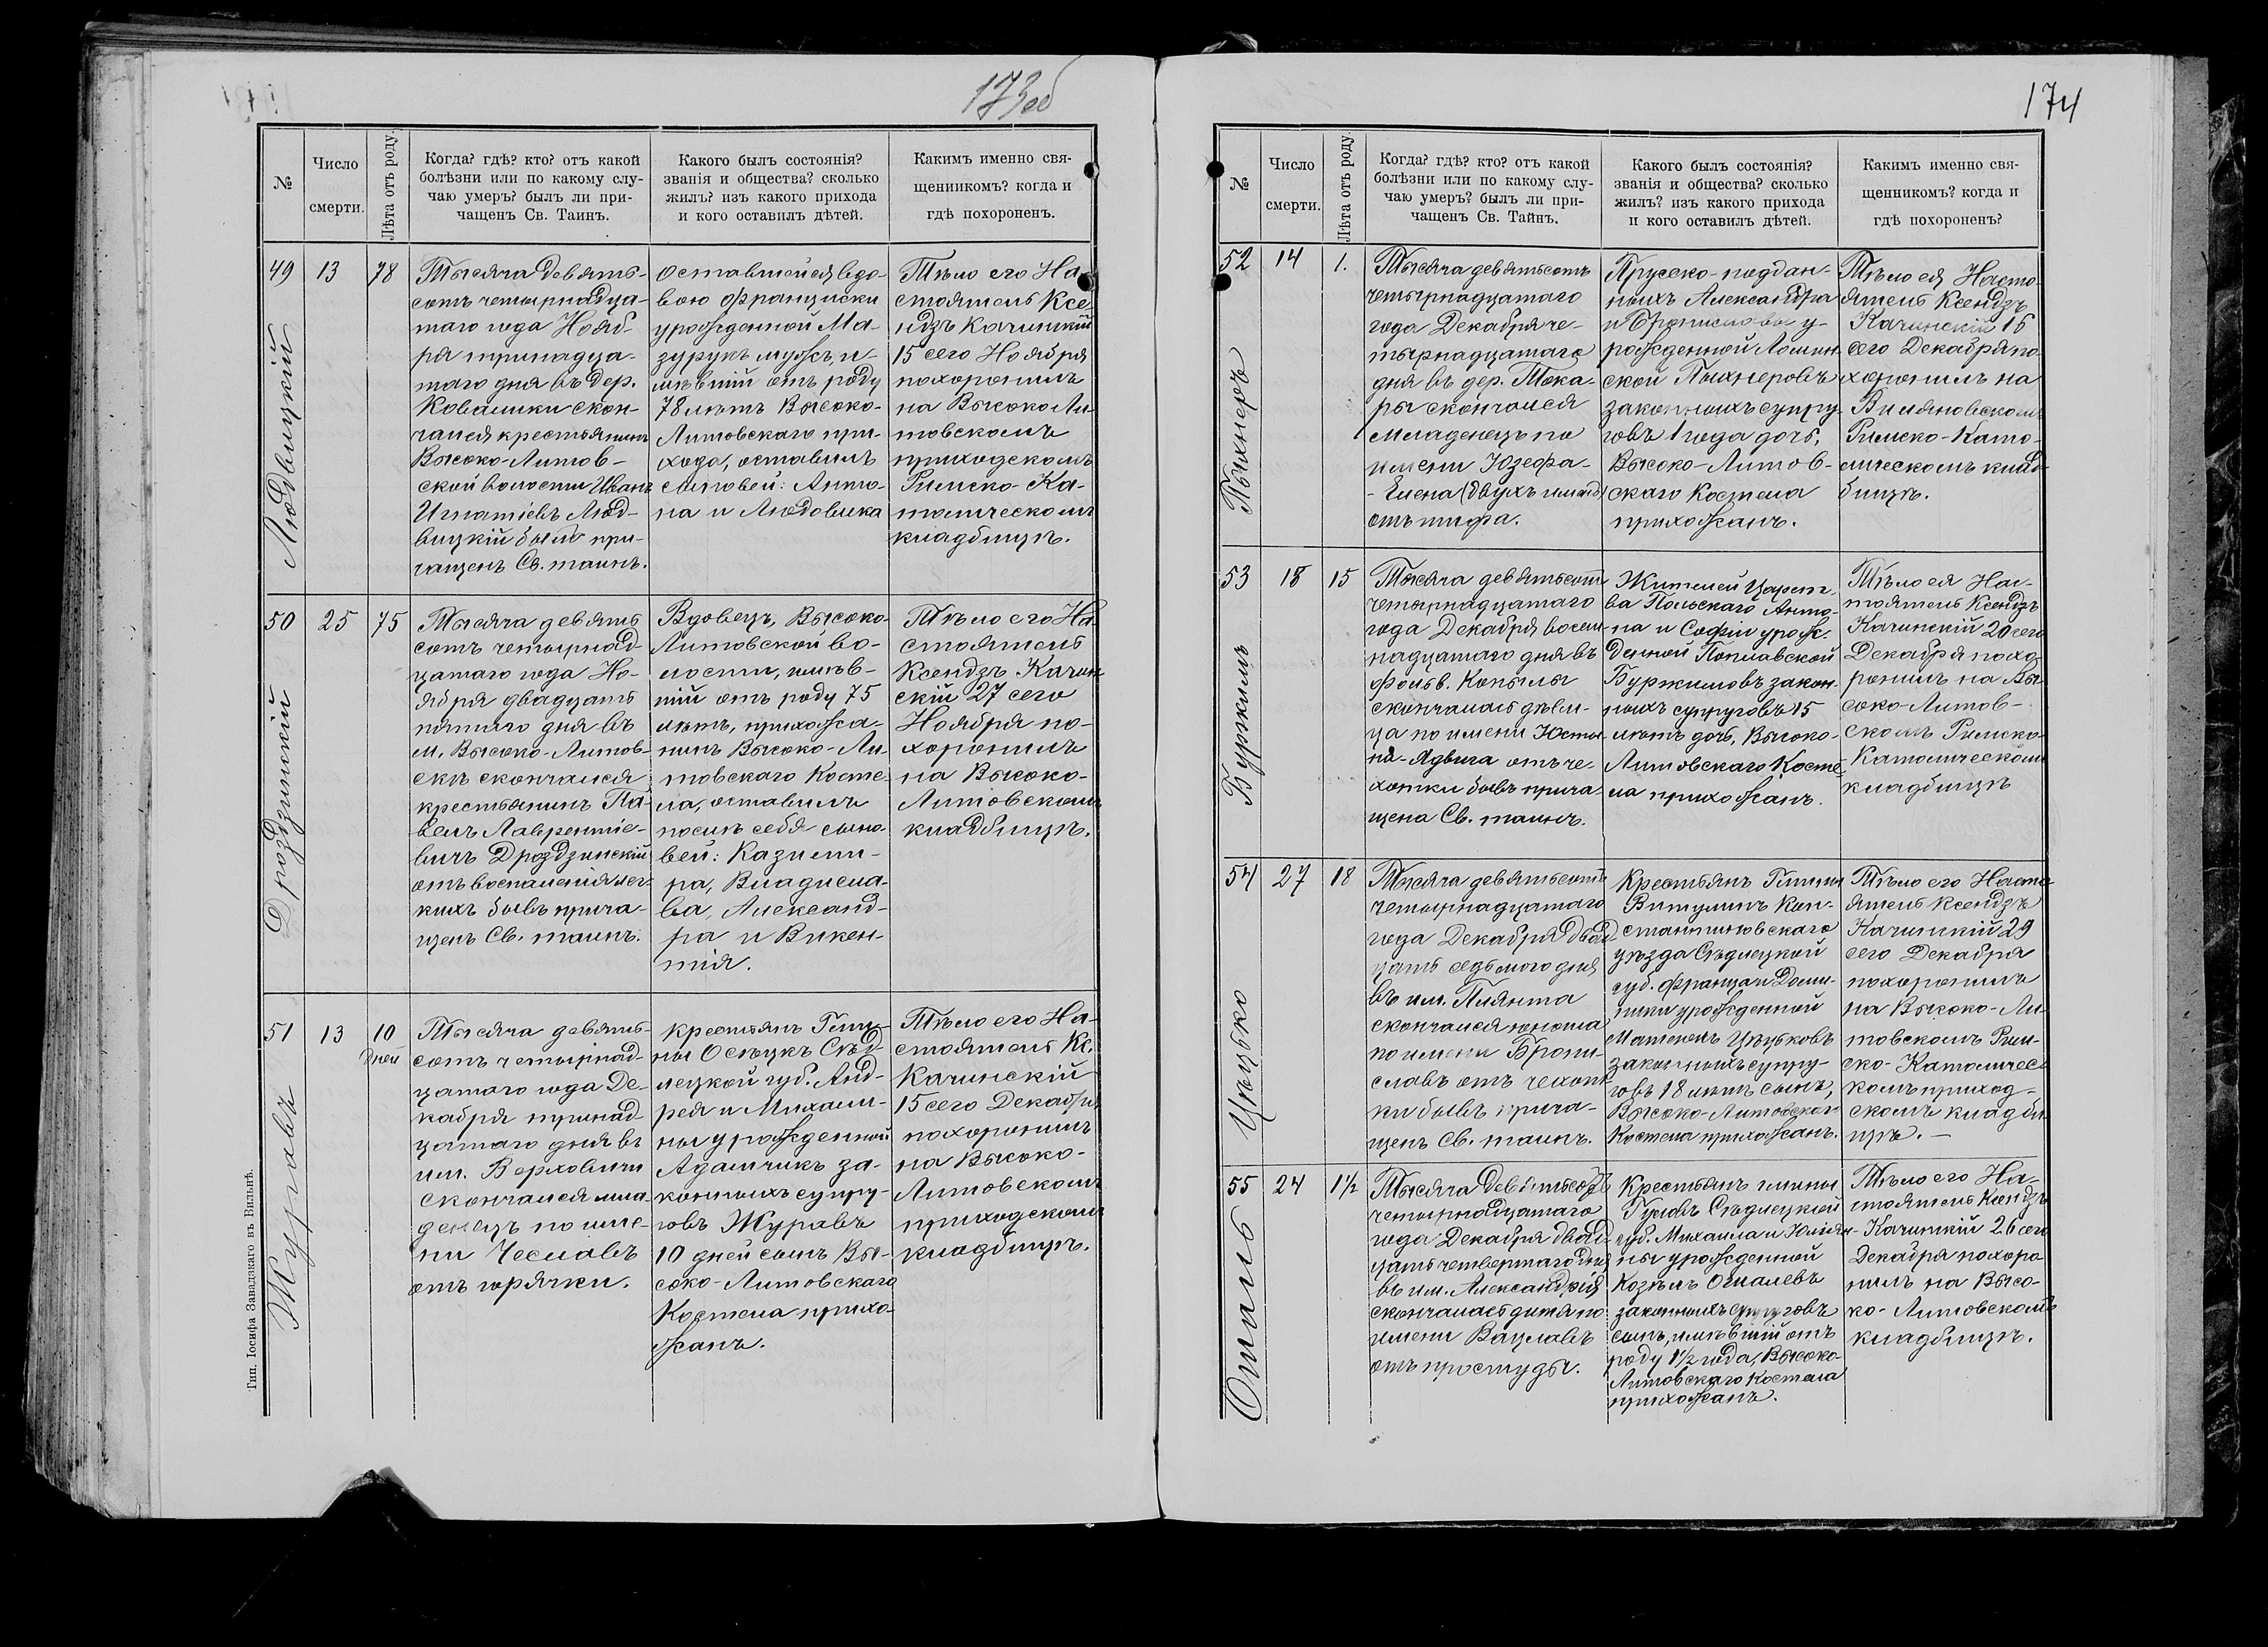 173об
№
Число
смерти.
Лѣта отъ роду.
Когда? гдѣ? кто? отъ какой
болѣзни или по какому слу-
чаю умеръ? былъ ли при-
чащенъ Св. Таинъ.
Какого былъ состоянія?
званія и общества? сколько
жилъ? изъ какого прихода
и кого оставилъ дѣтей.
Какимъ именно свя-
щенникомъ? когда и
гдѣ похороненъ.
49
Людвицкій
13
78
Тысяча девять-
сотъ четырнадца-
таго года Нояб-
ря тринадца-
таго дня въ дер.
Ковалики скон-
чался крестьянинъ
Высоко-Литов-
ской волости Иванъ
Игнатіевъ Люд-
вицкій былъ при-
чащенъ Св. таинъ.
оставшейся вдо-
вою Франциски
урожденной Ма-
зурукъ мужъ, и-
мѣвшій отъ роду
78 лѣтъ Высоко-
Литовскаго при-
хода, оставилъ
сыновей: Анто-
на и Людовика
Тѣло его На-
стоятель Ксе-
ндзъ Качинскій
15 сего Ноября
похоронилъ
на Высоко Ли-
товскомъ
приходскомъ
Римско-Ка-
толическомъ
кладбищѣ.
50
Дроздзинскій
25
75
Тысяча девять
сотъ четырнад-
цатаго года Но-
ября двадцать
пятаго дня въ
м. Высоко-Литов-
скѣ скончался
крестьянинъ Па-
велъ Лаврентіе-
вичъ Дроздзинскій
отъ воспаленія лег-
кихъ бывъ прича-
щенъ Св. таинъ.
Вдовецъ, Высоко-
Литовской во-
лости, имѣв-
шій отъ роду 75
лѣтъ, прихожа-
нинъ Высоко-Ли-
товскаго Косте-
ла, оставилъ
послѣ себя сыно-
вей: Казими-
ра, Владисла-
ва, Александ-
ра и Викен-
тія.
Тѣло его На-
стоятель
Ксендзъ Качин
скій 27 сего
Ноября по-
хоронилъ
на Высоко-
Литовскомъ
кладбищѣ.
51
Журавъ
13
10
дней
Тысяча девять-
сотъ четырнад-
цатаго года Де-
кабря тринад
цатаго дня въ
им. Верховичи
скончался мла-
денецъ по име-
ни Чеславъ
отъ горячки.
крестьянъ Гми-
ны Ослцукъ Сѣд-
лецкой губ. Анд-
рея и Михали-
ны урожденной
Адамчикъ за-
конныхъ супру-
говъ Журавъ
10 дней сынъ Вы-
соко-Литовскаго
Костела прихо-
жанъ.
Тѣло его На-
стоятель Кс.
Качинскій
15 сего Декабря
похоронилъ
на Высоко-
Литовскомъ
приходскомъ
кладбищѣ.
Тип. Іосифа Завадзкаго въ Вильнѣ.
174
№
Число
смерти.
Лѣта отъ роду.
Когда? гдѣ? кто? отъ какой
болѣзни или по какому слу-
чаю умеръ? былъ ли при-
чащенъ Св. Тайнъ.
Какого былъ состоянія?
званія и общества? сколько
жилъ? изъ какого прихода
и кого оставилъ дѣтей.
Какимъ именно свя-
щенникомъ? когда и
гдѣ похороненъ?
52
Пыхнеръ
14
1.
Тысяча девятьсотъ
четырнадцатаго
года Декабря че-
тырнадцатаго
дня въ дер. Тока-
ры скончался
младенецъ по
имени Юзефа-
-Елена (двухъ именъ)
отъ тифа.
Прусско-поддан-
ныхъ Александра
и Брониславы у-
рожденной Ломин-
ской Пыхнеровъ
законныхъ супру-
говъ 1 года дочь,
Высоко-Литов-
скаго Костела
прихожанъ.
Тѣло ея Насто-
ятель Ксендзъ
Качинскій 15
сего Декабря по-
хоронилъ на
Вилямовскомъ
Римско-Като-
лическомъ клад-
бищѣ.
53
Буржимъ
18
15
Тысяча девятьсотъ
четырнадцатаго
года Декабря восем-
надцатаго дня въ
фольв. Копылы
скончалась дѣви-
ца по имени Юсты-
на-Ядвига отъ че-
хотки бывъ прича-
щена Св. таинъ.
Жителей Царст-
ва Польскаго Анто-
на и Софіи урож-
денной Поплавской
Буржимовъ закон-
ныхъ супруговъ 15
лѣтъ дочь, Высоко-
Литовскаго Косте-
ла прихожанъ.
Тѣло ея Нас-
тоятель Ксендзъ
Качинскій 20 сего
Декабря похо-
ронилъ на Вы-
соко-Литов-
скомъ Римско-
Католическомъ
кладбищѣ
54
Цѣцько
27
18
Тысяча девятьсотъ
четырнадцатаго
года Декабря двад-
цать седьмого дня
въ им. Пиянта
скончался юноша
по имени Брони-
славъ отъ чехот-
ки бывъ прича-
щенъ Св. таинъ.
Крестьянъ Гмины
Витулинъ Кон-
стантиновскаго
уѣзда Сѣдлецкой
губ. Франца и Доми-
ники урожденной
законныхъ супру-
говъ 18 лѣтъ сынъ,
Высоко-Литовскаго
Костела прихожанъ.
Тѣло его Насто-
ятель Ксендзъ
Качинскій 29
сего Декабря
похоронилъ
на Высоко-Ли-
товскомъ Рим-
ско-Католичес-
комъ приход-
скомъ кладби-
щѣ. —
55
Омаль
24
1½
Тысяча девятьсотъ
четырнадцатаго
года Декабря двад-
цать четвертаго дня
въ им. Александрія
скончалась дитя по
имени Вацлавъ
отъ простуды.
Крестьянъ гмины
Гусовъ Сѣдлецкой
губ. Михаила и Юлія-
ны урожденной
Козѣлъ Омалевъ
законныхъ супруговъ
сынъ, имѣвшій отъ
роду 1½ года, Высоко-
Литовскаго Костела
прихожанъ.
Тѣло его На-
стоятель Ксендзъ
Качинскій 26 сего
Декабря похоро-
нилъ на Высо-
ко-Литовскомъ
кладбищѣ.